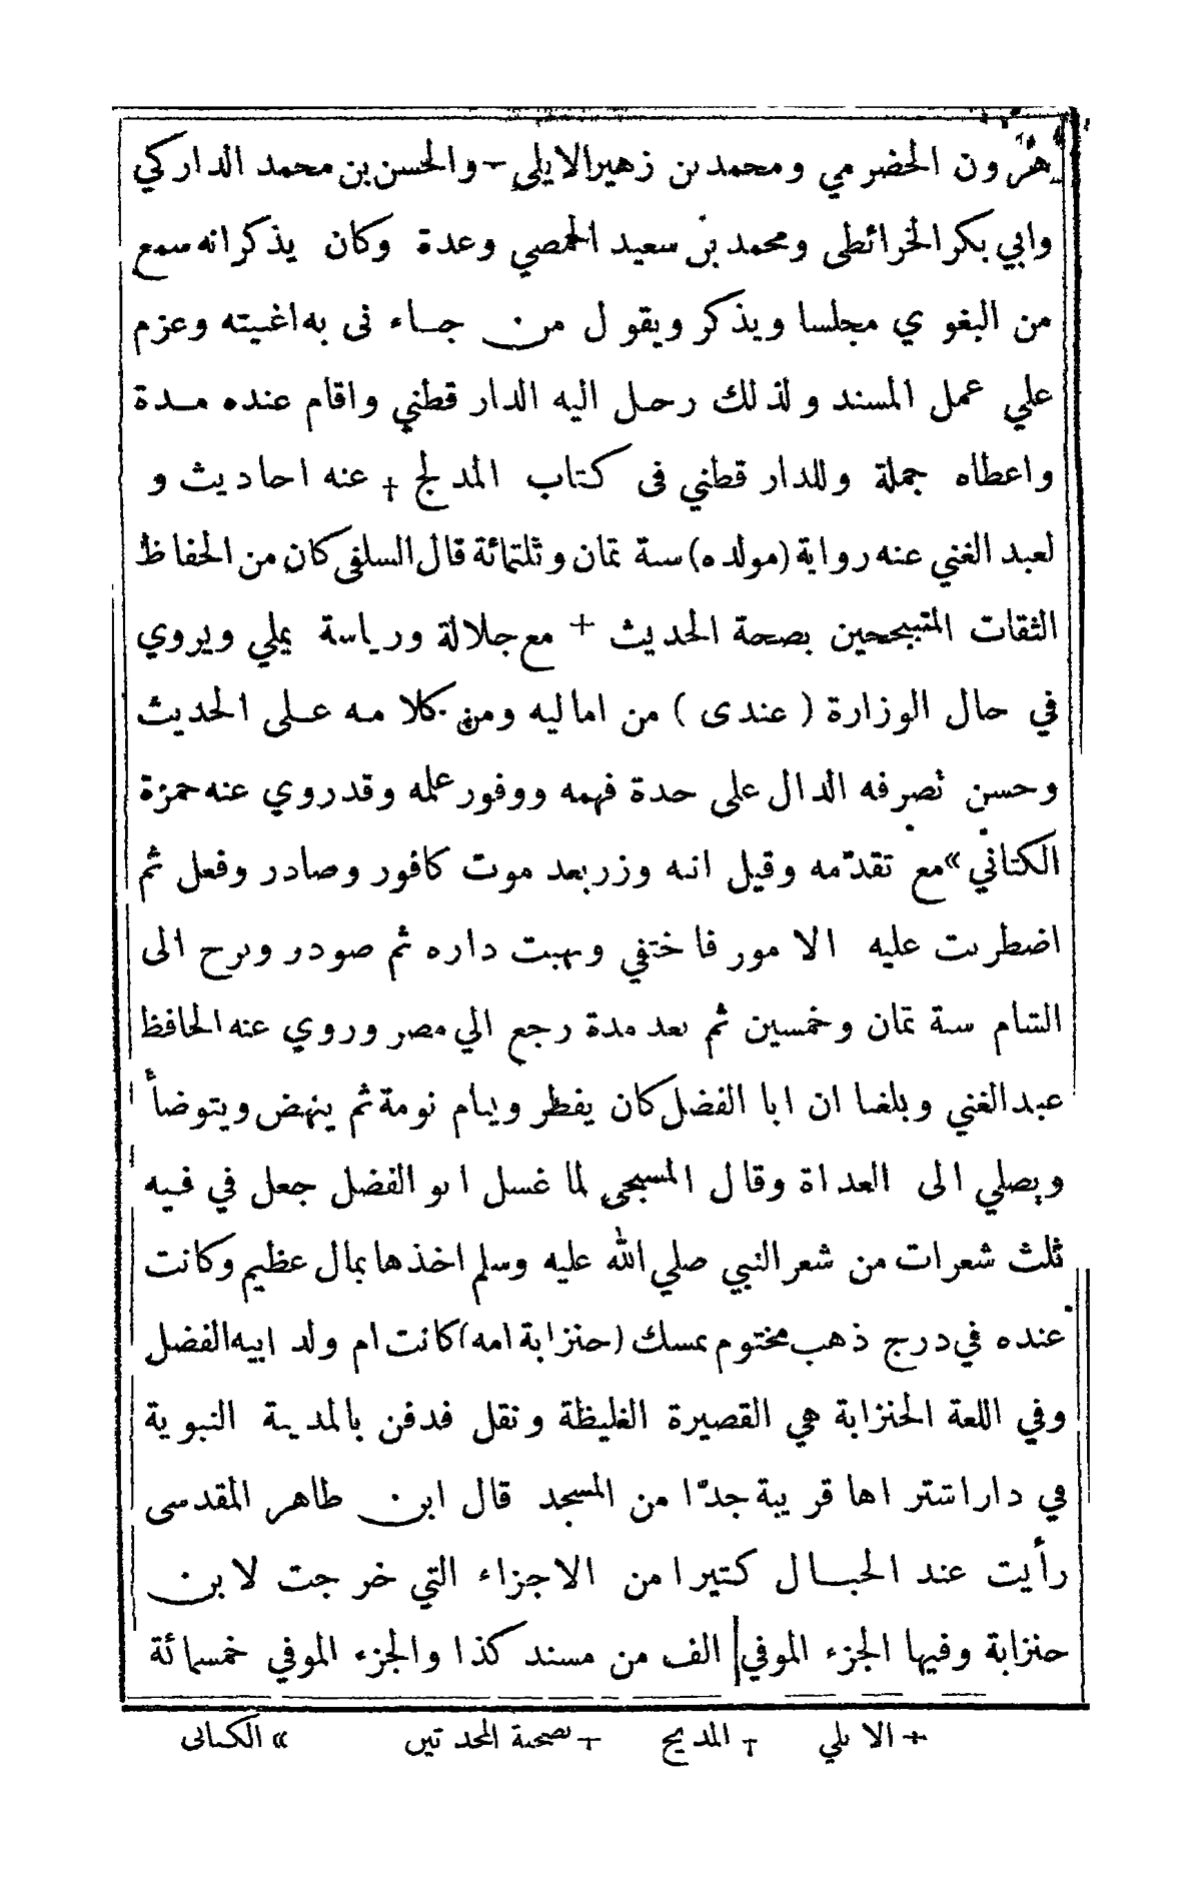 هٰرون الحضرمي ومحمد بن زهير الايلي + والحسن بن محمد الداركي
وابي بكر الخرائطي ومحمد بن سعيد الحمصي وعدة وكان يذكر انه سمع
من البغوي مجلسا ويذكر ويقول من جاء نى به اغيته وعزم
علي عمل المسند ولذلك رحل اليه الدار قطني واقام عنده مدة
واعطاه جملة وللدار قطني فى كتاب المدلج + عنه احاديث و
لعبد الغني عنه رواية (مولده) سنة ثمان وثلثمائة قال السلفى كان من الحفاظ
الثقات المتبجحين بصحة الحديث + مع جلالة ورياسة يملي ويروي
في حال الوزارة ( عندى ) من اماليه ومن كلامه على الحديث
وحسن تصرفه الدال على حدة فهمه ووفور علمه وقد روي عنه حمزة
الكتاني» مع تقدّمه وقيل انه وزر بعد موت كافور وصادر وفعل ثم
اضطربت عليه الامور فاختفي ونهبت داره ثم صودر وبرح الى
الشام سنة ثمان وخمسين ثم بعد مدة رجع الي مصر وروي عنه الحافظ
عبد الغني وبلغنا ان ابا الفضل كان يفطر وينام نومة ثم ينهض ويتوضأ
ويصلي الى الغداة وقال المسبحي لما غسل ابو الفضل جعل في فيه
ثلث شعرات من شعر النبي صلي الله عليه وسلم اخذها بمال عظيم وكانت
عنده في درج ذهب مختوم بمسك (حنزابة امه) كانت ام ولد ابيه الفضل
وفي اللغة الحنزابة هي القصيرة الغليظة ونقل فدفن بالمدينة النبوية
في دار اشتراها قريبة جدّا من المسجد قال ابن طاهر المقدسى
رأيت عند الحبال كثيرا من الاجزاء التي خرجت لابن
حنزابة وفيها الجزء الموفي الف من مسند كذا والجزء الموفي خمسمائة
+ الايلي + المديح + بصحبة المحدثين » الكنانى